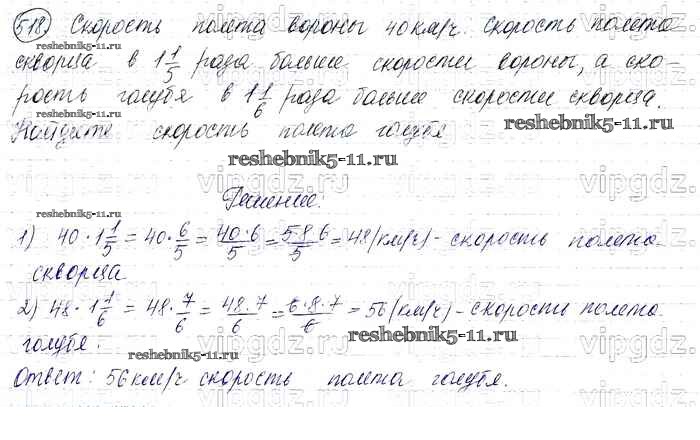 518) Скорость полета вороны 40 км/ч. Скорость полета
скворца в 1 1/5 раза больше скорости вороны, а ско-
рость голубя в 1 1/6 раза больше скорости скворца.
Найдите скорость полета голубя
Решение:
1) 40 · 1 1/5 = 40 · 6/5 = 40·6/5 = 5·8·6/5 = 48 (км/ч) - скорость полета
скворца
2) 48 · 1 1/6 = 48 · 7/6 = 48·7/6 = 6·8·7/6 = 56 (км/ч) - скорости полета
голубя.
Ответ: 56 км/ч скорость полета голубя.
reshebnik5-11.ru
reshebnik5-11.ru
reshebnik5-11.ru
reshebnik5-11.ru
reshebnik5-11.ru
reshebnik5-11.ru
reshebnik5-11.ru
vipgdz.com